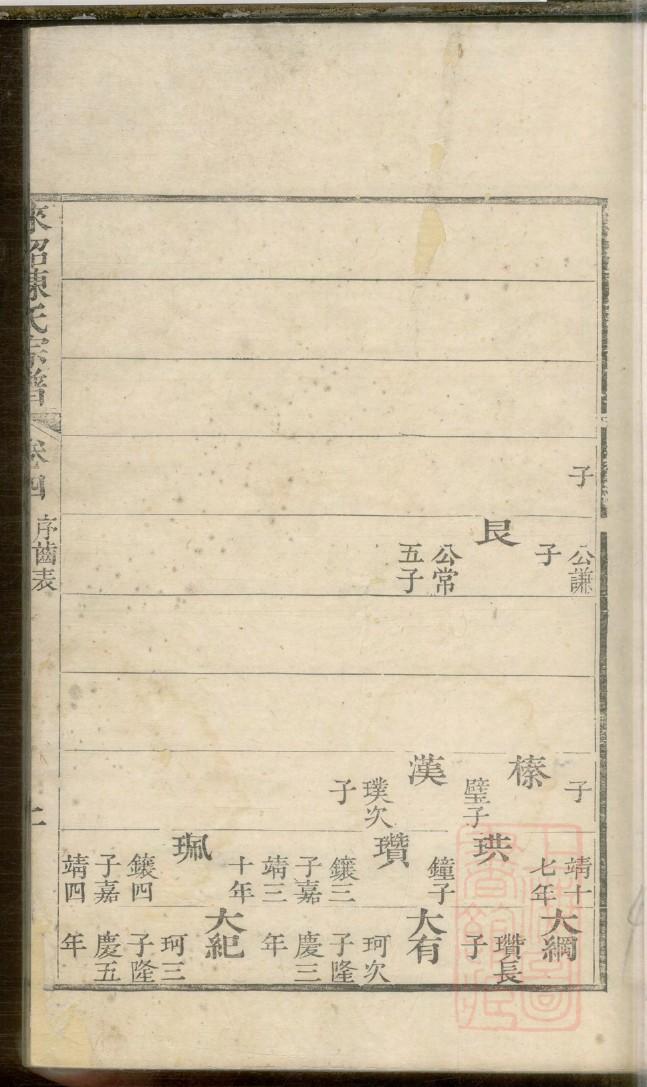 子
公謙
子
艮
公常
五子
子
榛
璧子
漢
璞次
子
靖十
七年
珙
鐘子
瓚
鑲三
子嘉
靖三
十年
珮
鑲四
子嘉
靖四
大綱
瓚長
子
大有
珂次
子隆
慶三
年
大紀
珂三
子隆
慶五
年
陳氏宗譜
卷四
序齒表